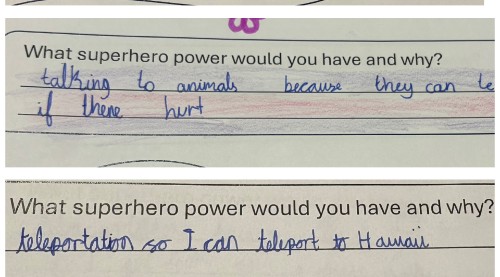 What superhero power would you have and why?
talking to animals because they can te
if there hurt
What superhero power would you have and why?
teleportation so I can teleport to Hawaii